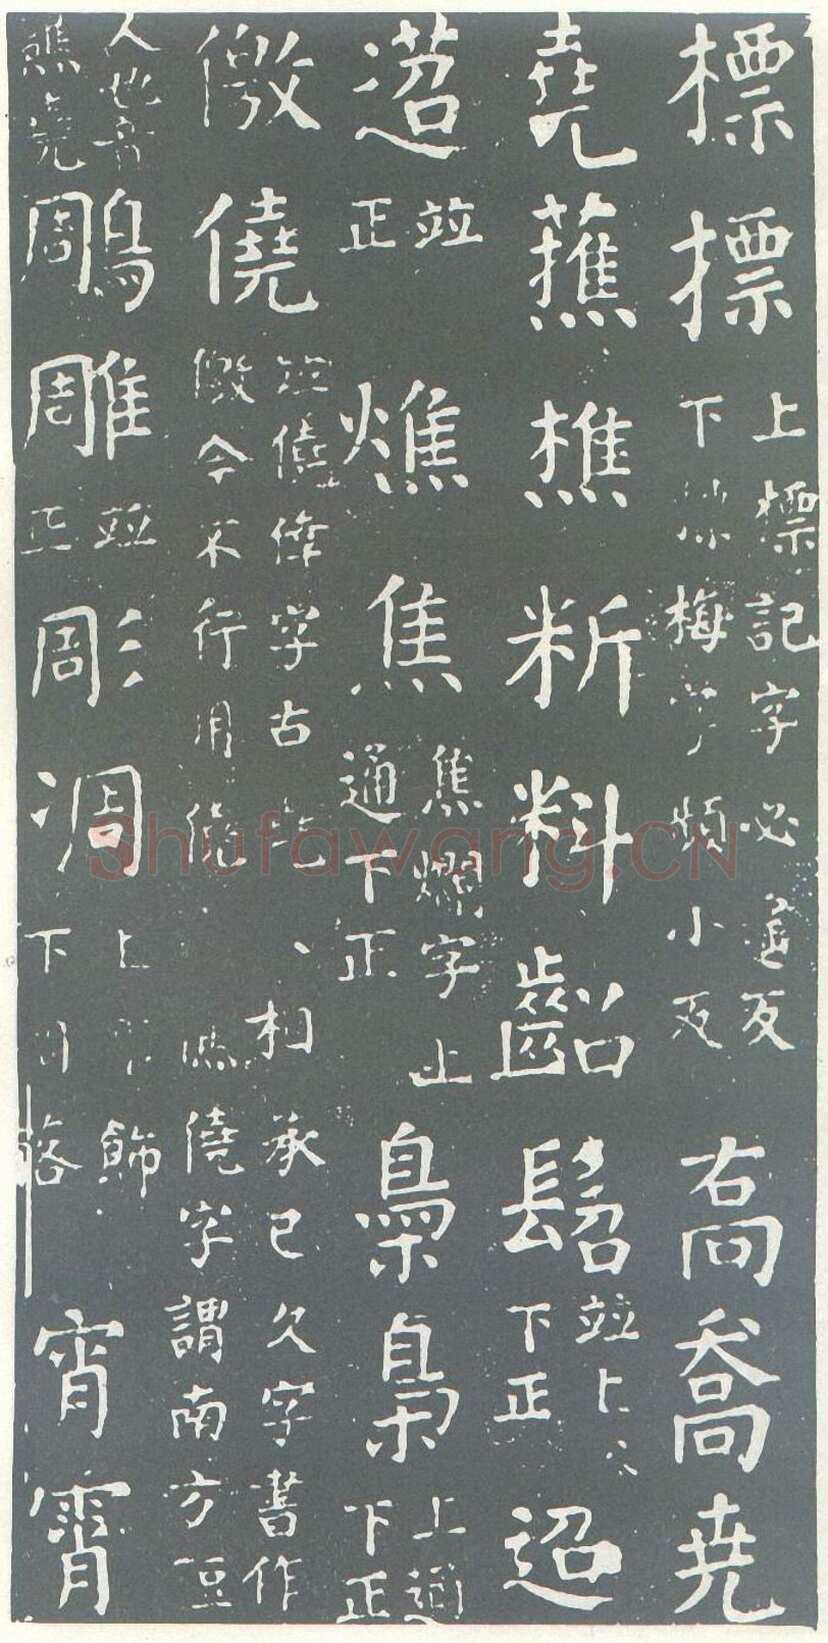 標摽上標記字必遥反下摽梅字頻小反髙喬尭
堯蕉樵䉼料齠髫並上俗下正迢
蓨並正燋焦焦爛字上通下正梟梟上通下正
儌僥並僥倖字古堯、相承已久字書作儌今不行用僥僬僥字謂南方短
人也音譙堯鵰雕並正彫凋上彫飾下凋落宵霄
Shufawang.CN